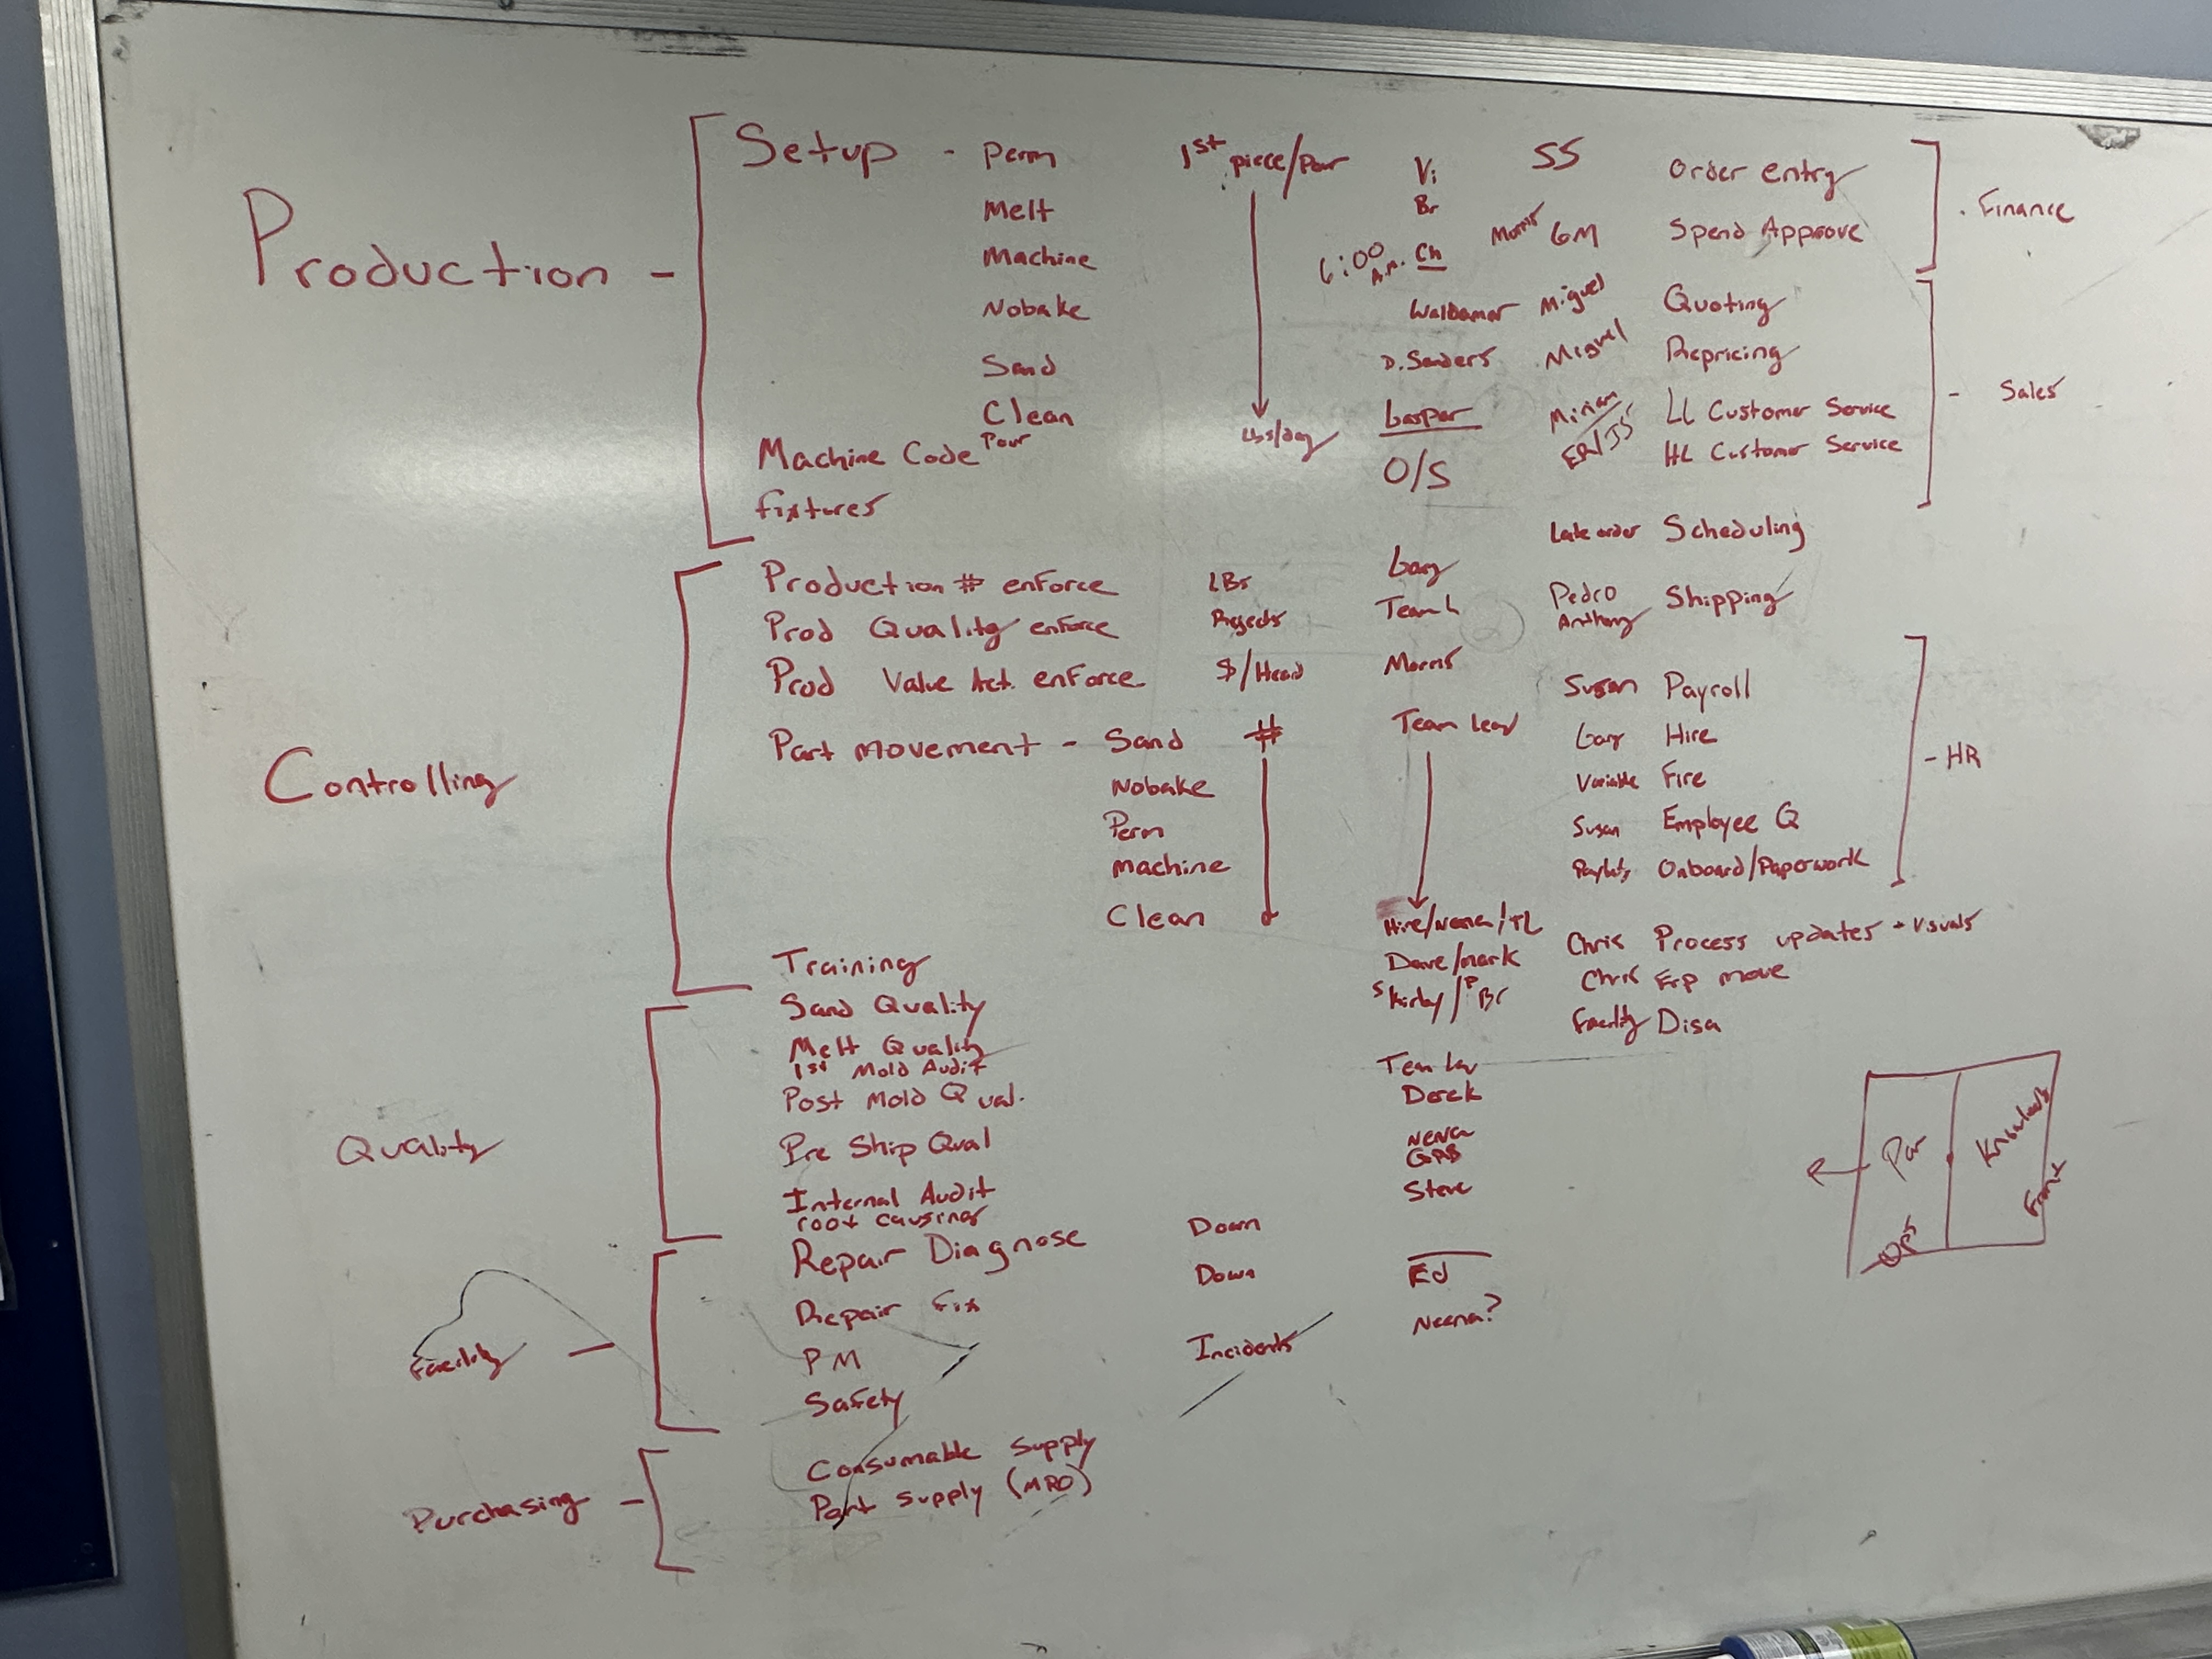 Production -
Setup - Perm
Melt
Machine
Nobake
Sand
Clean
Pour
Machine Code
fixtures
1st piece/Pour
Lbs/day
Vi
Br
6:00 A.M. Ch
Waldamar
D. Sanders
Gaspar
O/S
SS Order entry
Morris GM Spend Approve
. Finance
Miguel Quoting
Miguel Repricing
Miriam LL Customer Service
ER/JS HL Customer Service
- Sales
Late order Scheduling
Pedro Anthony Shipping
Controlling
Production # enforce LBs Gary
Prod Quality enforce Rejects Team L
Prod Value Act. enforce $/Head Morris
Part movement - Sand # Team lead
Nobake
Perm
Machine
Clean
Training Hire/Nena/TL
Susan Payroll
Gary Hire
Variable Fire
Susan Employee Q
Onboard/Paperwork
- HR
Chris Process updates + Visuals
Chris Erp move
Facility Disa
Quality
Sand Quality Dave/Mark
Melt Quality S Kirby/P Br
1st Mold Audit
Post Mold Qual.
Pre Ship Qual
Internal Audit
root causing
Derek
Nena
GAB
Steve
Facility -
Repair Diagnose Down
Repair Fix Down Ed
PM
Safety Incidents Neena?
Purchasing -
Consumable Supply
Part Supply (MRO)
Front